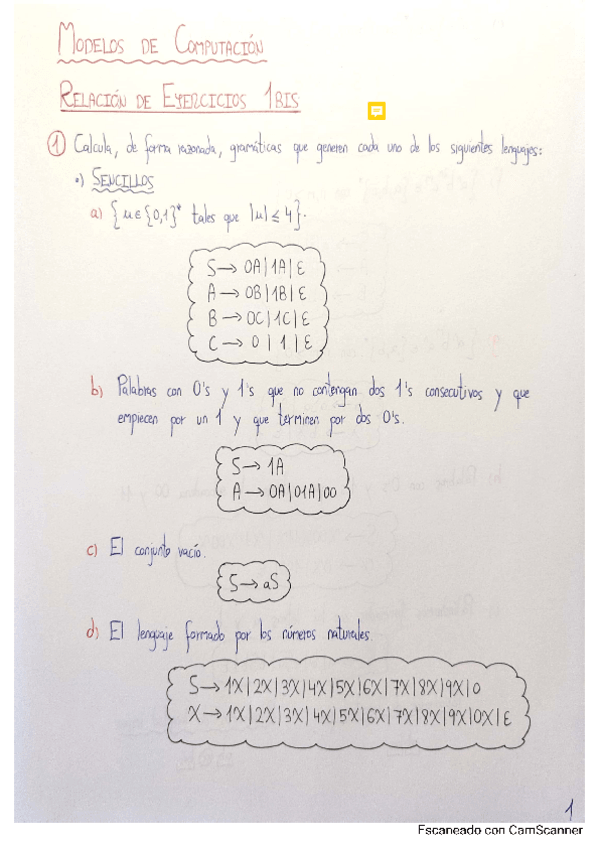 MODELOS DE COMPUTACIÓN
RELACIÓN DE EJERCICIOS 1BIS
① Calcula, de forma razonada, gramáticas que generen cada uno de los siguientes lenguajes:
•) SENCILLOS
a) {u∈{0,1}* tales que |u| ≤ 4}.
S → 0A|1A|ε
A → 0B|1B|ε
B → 0C|1C|ε
C → 0|1|ε
b) Palabras con 0's y 1's que no contengan dos 1's consecutivos y que
empiecen por un 1 y que terminen por dos 0's.
S → 1A
A → 0A|01A|00
c) El conjunto vacío.
S → aS
d) El lenguaje formado por los números naturales.
S → 1X|2X|3X|4X|5X|6X|7X|8X|9X|0
X → 1X|2X|3X|4X|5X|6X|7X|8X|9X|0X|ε
1
Escaneado con CamScanner